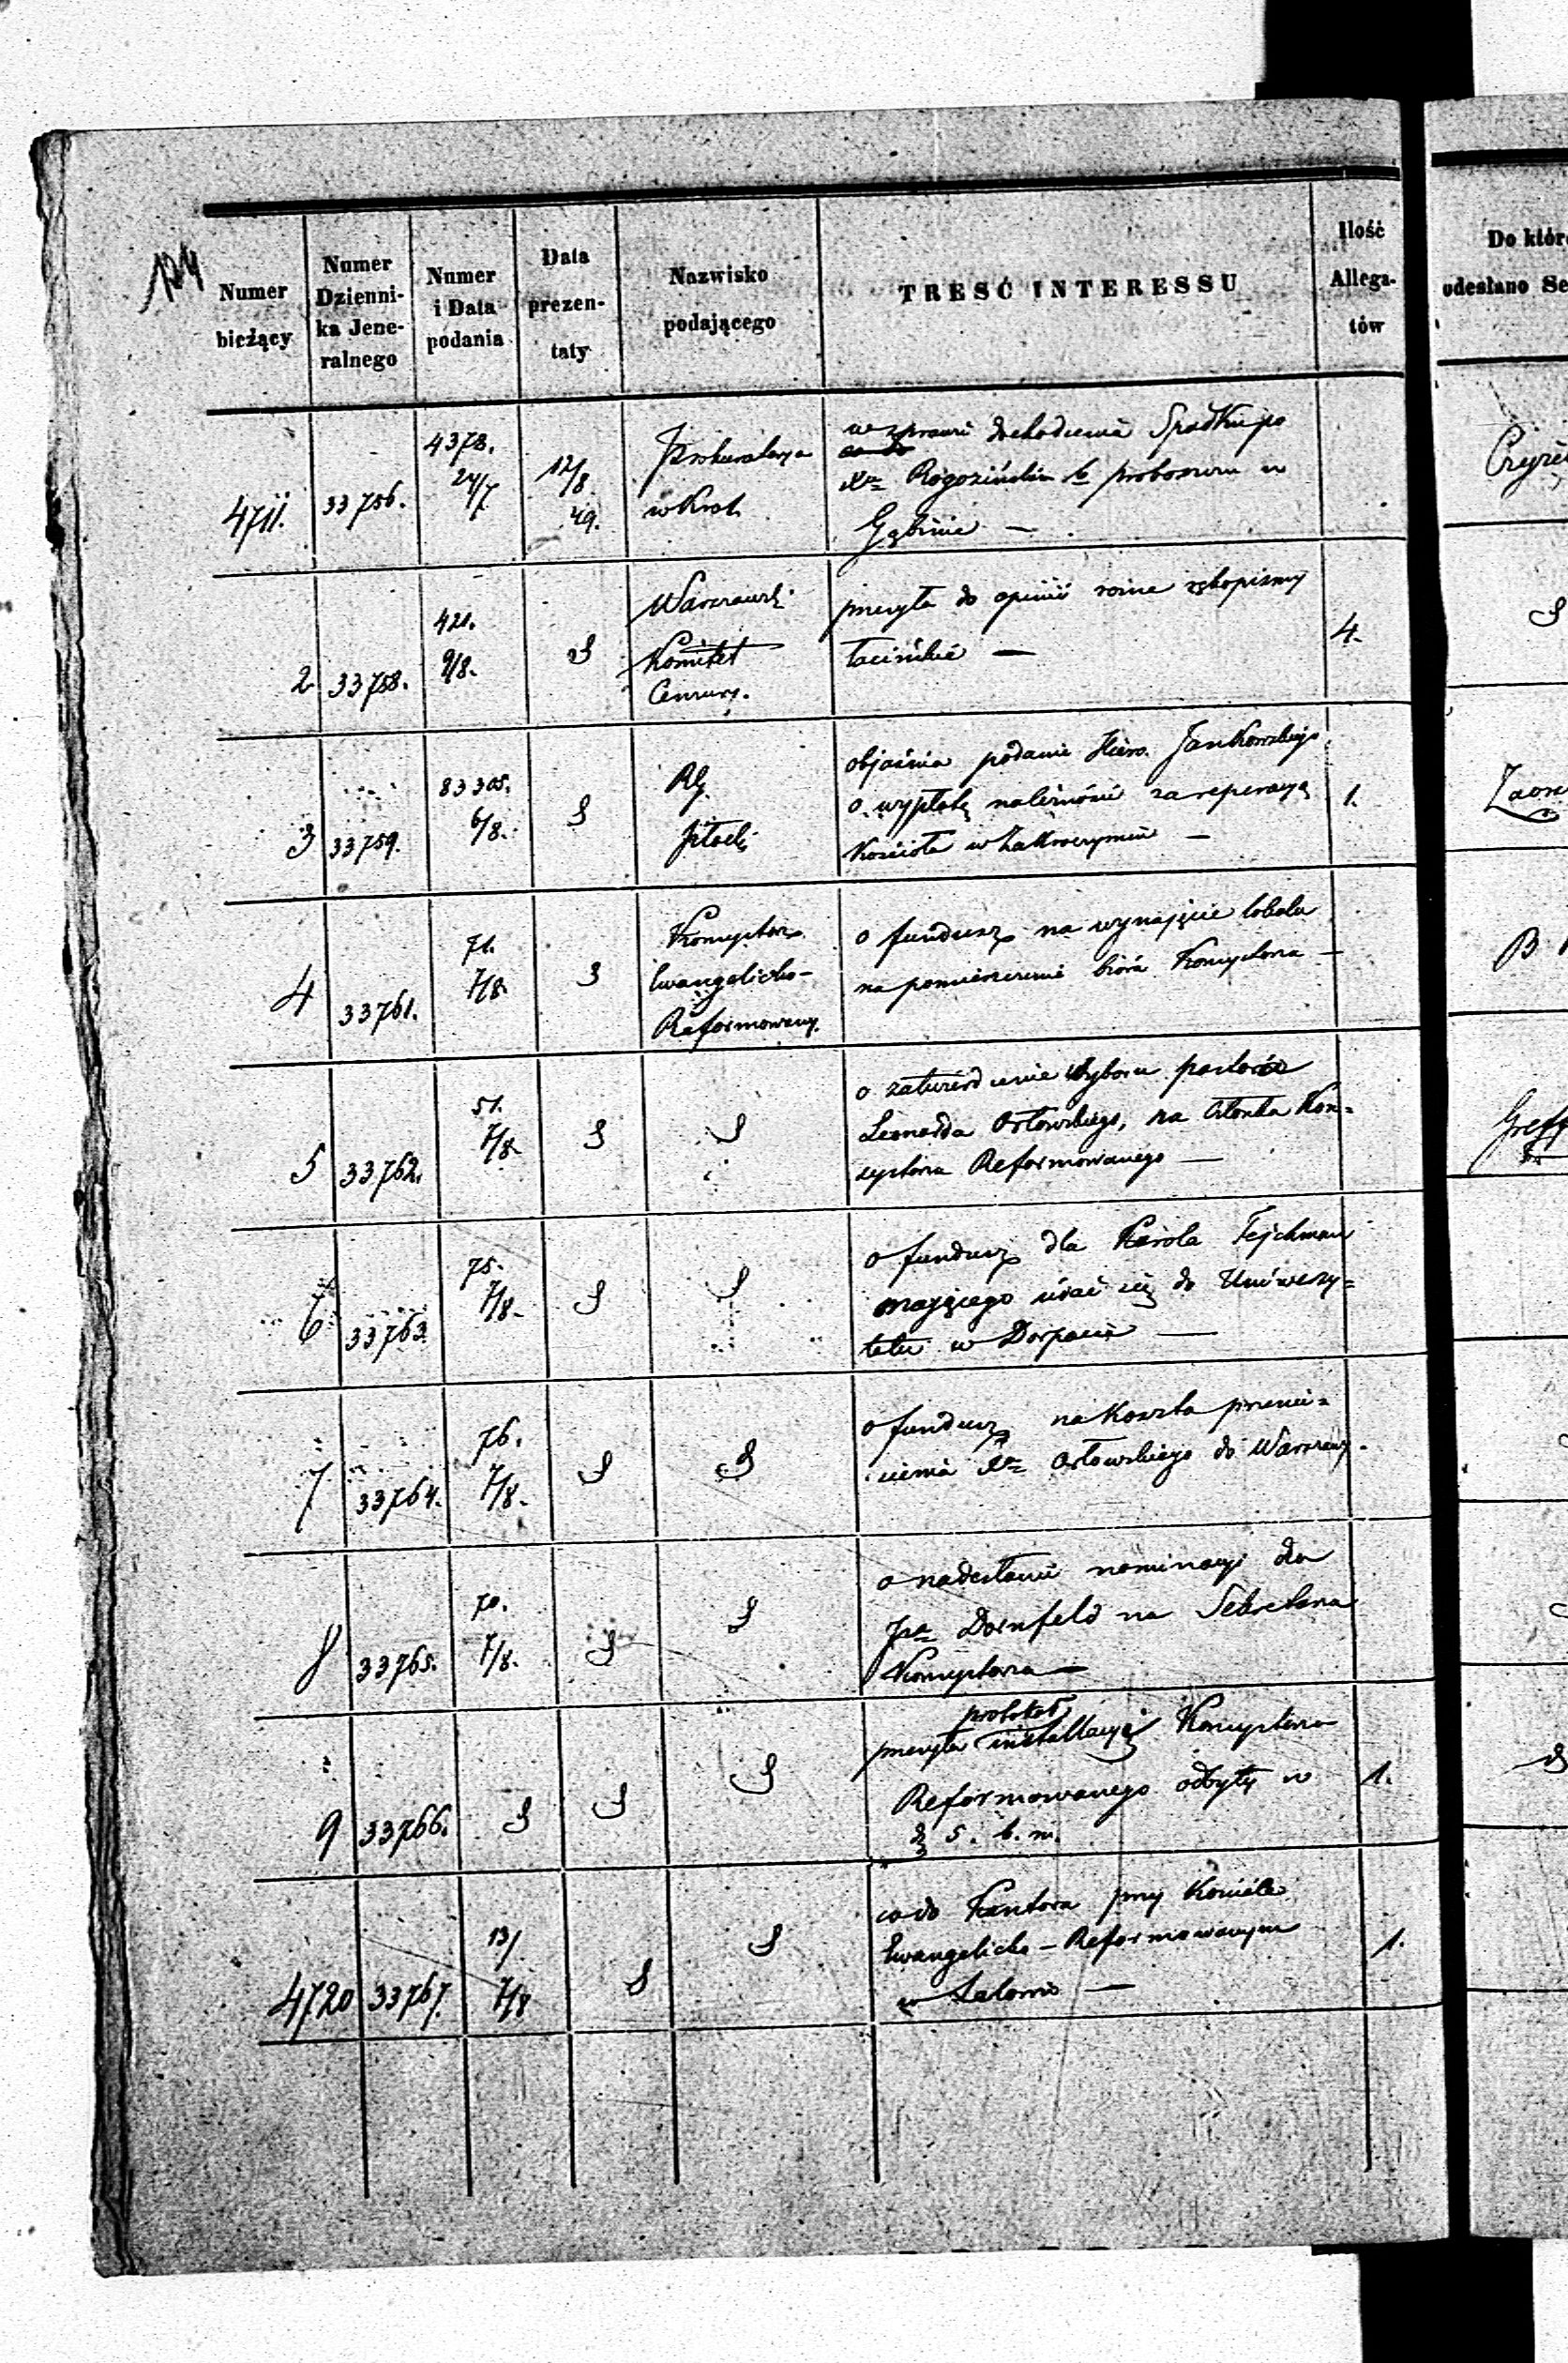 124
Numer bieżący
Numer Dzienni-ka Jene-ralnego
Numer i Data podania
Data prezen-taty
Nazwisko podającego
TRESĆ INTERESSU
Ilość Allega-tów
Do któr
odesłano Se
4711. 33756. 4378. 24/7 12/8 49. Prokuratorya w Krol.
w sprawie dochodzenia Spadku po
Xu Rogozińskim b proboszczu w
Gąbinie —
2 33758. 421. 9/8. S Warszawski Komitet Cenzury.
przesyła do opinii rózne rękopismy
łacińskie — 4.
S
3 33759. 83305. 6/8. S RG. Płocki
objaśnia podanie Hiero. Jankowskiego
o wypłatę należności za reperacyą
Kościoła w Zakroczymiu — 1.
4 33761. 71. 7/8. S Konsystorz Ewangelicko-Reformowany.
o fundusz na wynajęcie lokalu
na pomieszczenie biora Konsystorza —
B
5 33762. 51. 7/8. S S
o zatwierdzenie Wyboru pastora
Leonarda Orłowskiego, na Członka Kon=
systorza Reformowanego —
6 33763. 75. 7/8. S S
o fundusz dla Karola Tejchman
mającego udać się do Uniwersy=
tetu w Dorpacie —
7 33764. 76. 7/8. S S
o fundusz na Koszta przenie=
sienia Xa Orłowskiego do Warszawy.
8 33765. 70. 7/8. S S
o nadesłanie nominacyi dla
Pa Dornfeld na Sekretarza
Konsystorza —
9 33766. S S S
protokół
przesyła installacyi Konsystorza
Reformowanego odbyty w
d 5. b. m. 1.
4720 33767. 13/ 7/8 S S
co do Kantora przy Kościele
Ewangelicko-Reformowanym
w Zelowie — 1.